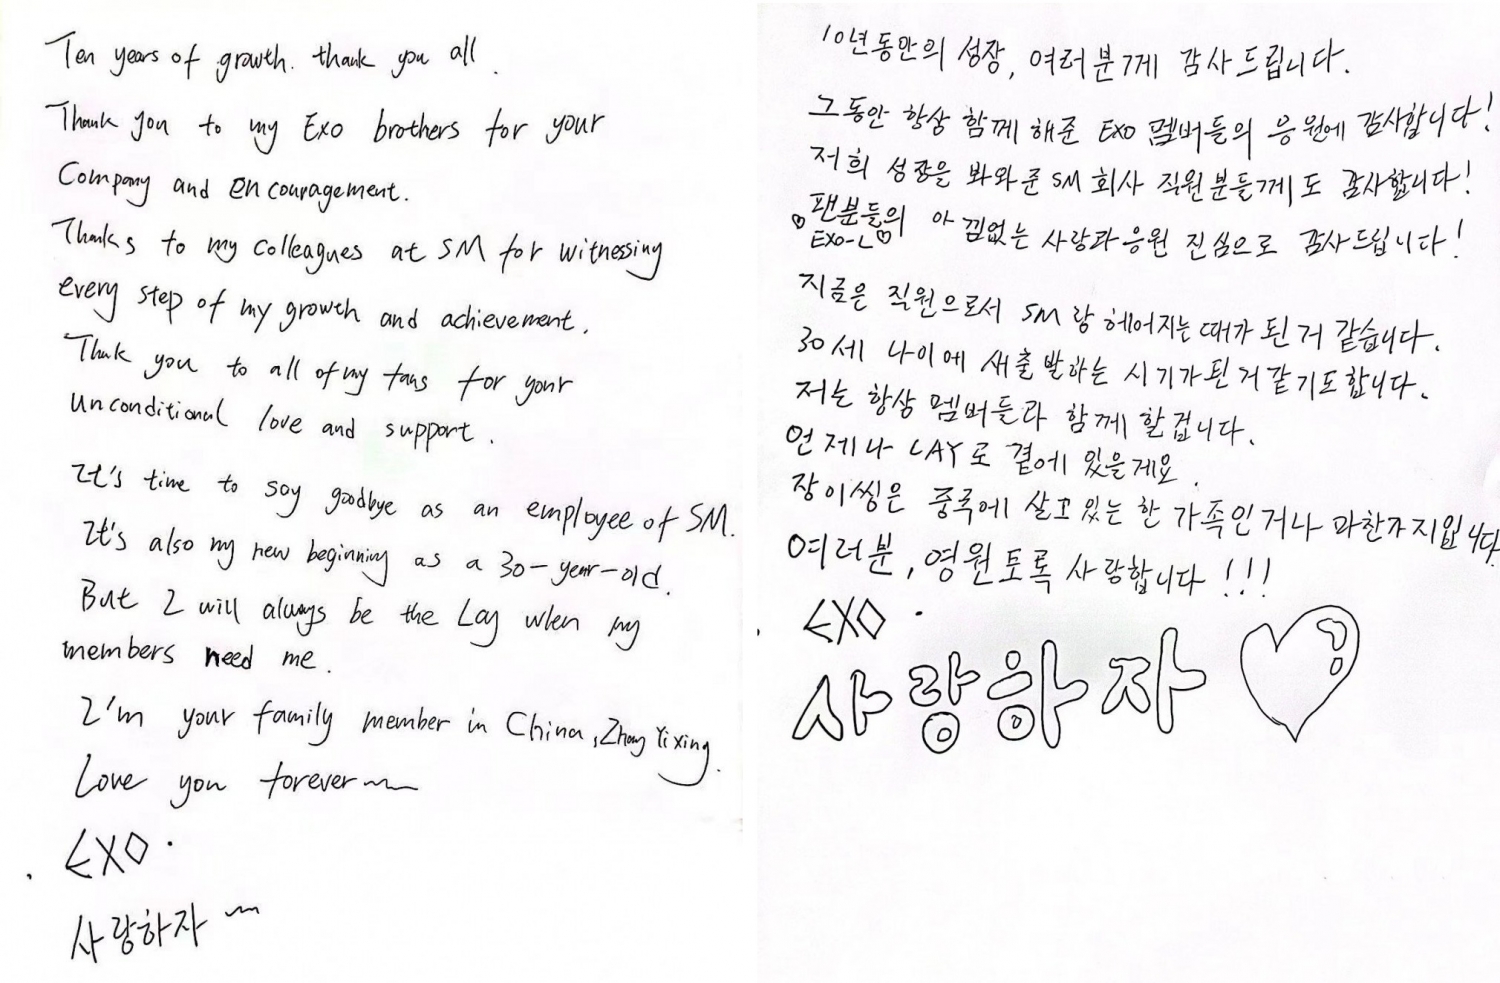 Ten years of growth. thank you all.
Thank you to my Exo brothers for your
Company and encouragement.
Thanks to my colleagues at SM for witnessing
every step of my growth and achievement.
Thank you to all of my fans for your
unconditional love and support.
It's time to say goodbye as an employee of SM.
It's also my new beginning as a 30-year-old.
But I will always be the Lay when my
members need me.
I'm your family member in China, Zhang Yixing.
Love you forever~
EXO.
사랑하자~
10년동안의 성장, 여러분께 감사드립니다.
그동안 항상 함께 해준 EXO 멤버들의 응원에 감사합니다!
저희 성장을 봐와준 SM 회사 직원분들께도 감사합니다!
♡팬분들의 아낌없는 사랑과 응원 진심으로 감사드립니다!
EXO-L♡
지금은 직원으로서 SM랑 헤어지는 때가 된 거 같습니다.
30세 나이에 새출발하는 시기가 된 거 같기도 합니다.
저는 항상 멤버들과 함께 할 겁니다.
언제나 LAY로 곁에 있을게요.
장이씽은 중국에 살고 있는 한 가족인거나 마찬가지입니다
여러분, 영원토록 사랑합니다!!!
EXO.
사랑하자♡